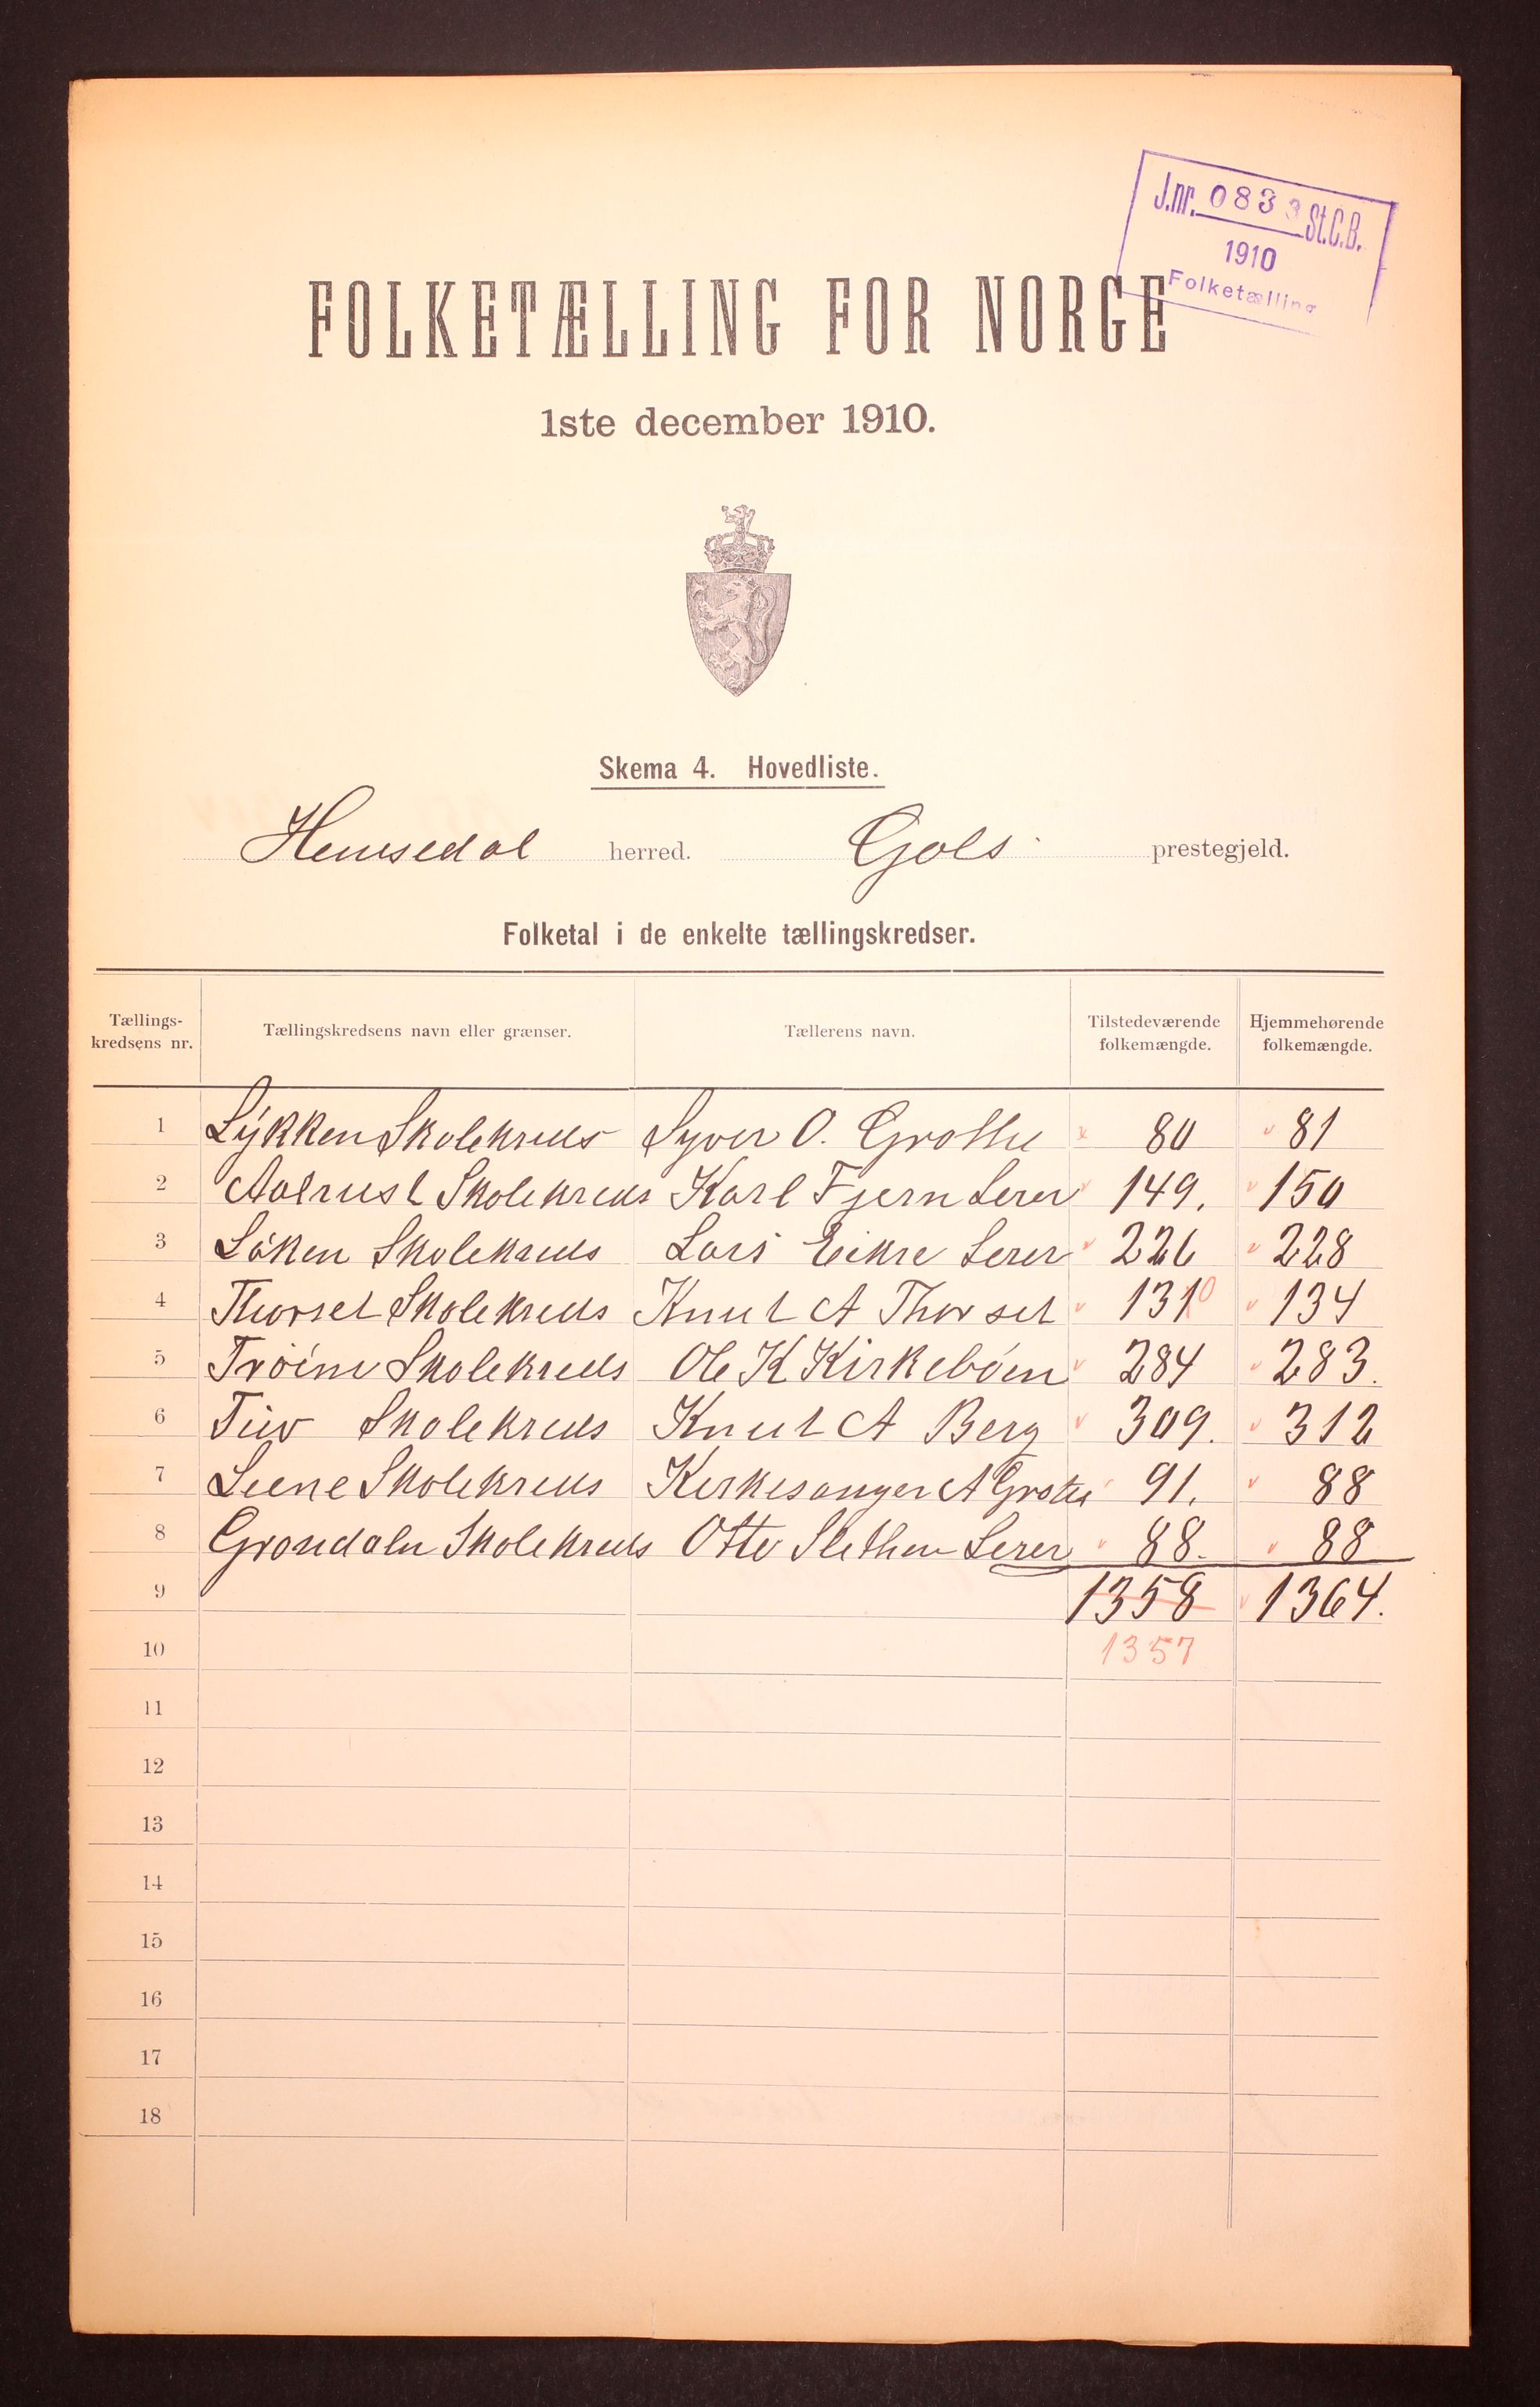 J.nr. 0833 St.C.B.
1910
Folketælling
FOLKETÆLLING FOR NORGE
1ste december 1910.
Skema 4. Hovedliste.
Hemsedal herred. Gols prestegjeld.
Folketal i de enkelte tællingskredser.
Tællings-kredsens nr. Tællingskredsens navn eller grænser. Tællerens navn. Tilstedeværende folkemængde. Hjemmehørende folkemængde.
1 Lykken Skolekreds Syver O. Grothe 80 81
2 Aalrust Skolekreds Karl Fjern Lerer 149. 150
3 Løken Skolekreds Lars Eikre Lerer 226 228
4 Thorset Skolekreds Knut A Thorset 131 0 134
5 Trøim Skolekreds Ole K Kirkebøen 284 283.
6 Tuv Skolekreds Knut A Berg 309. 312
7 Liene Skolekreds Kirkesanger A Grøte 91. 88
8 Grøndalen Skolekreds Otto Slethen Lerer 88. 88
9 1358 1364.
10 1357
11
12
13
14
15
16
17
18